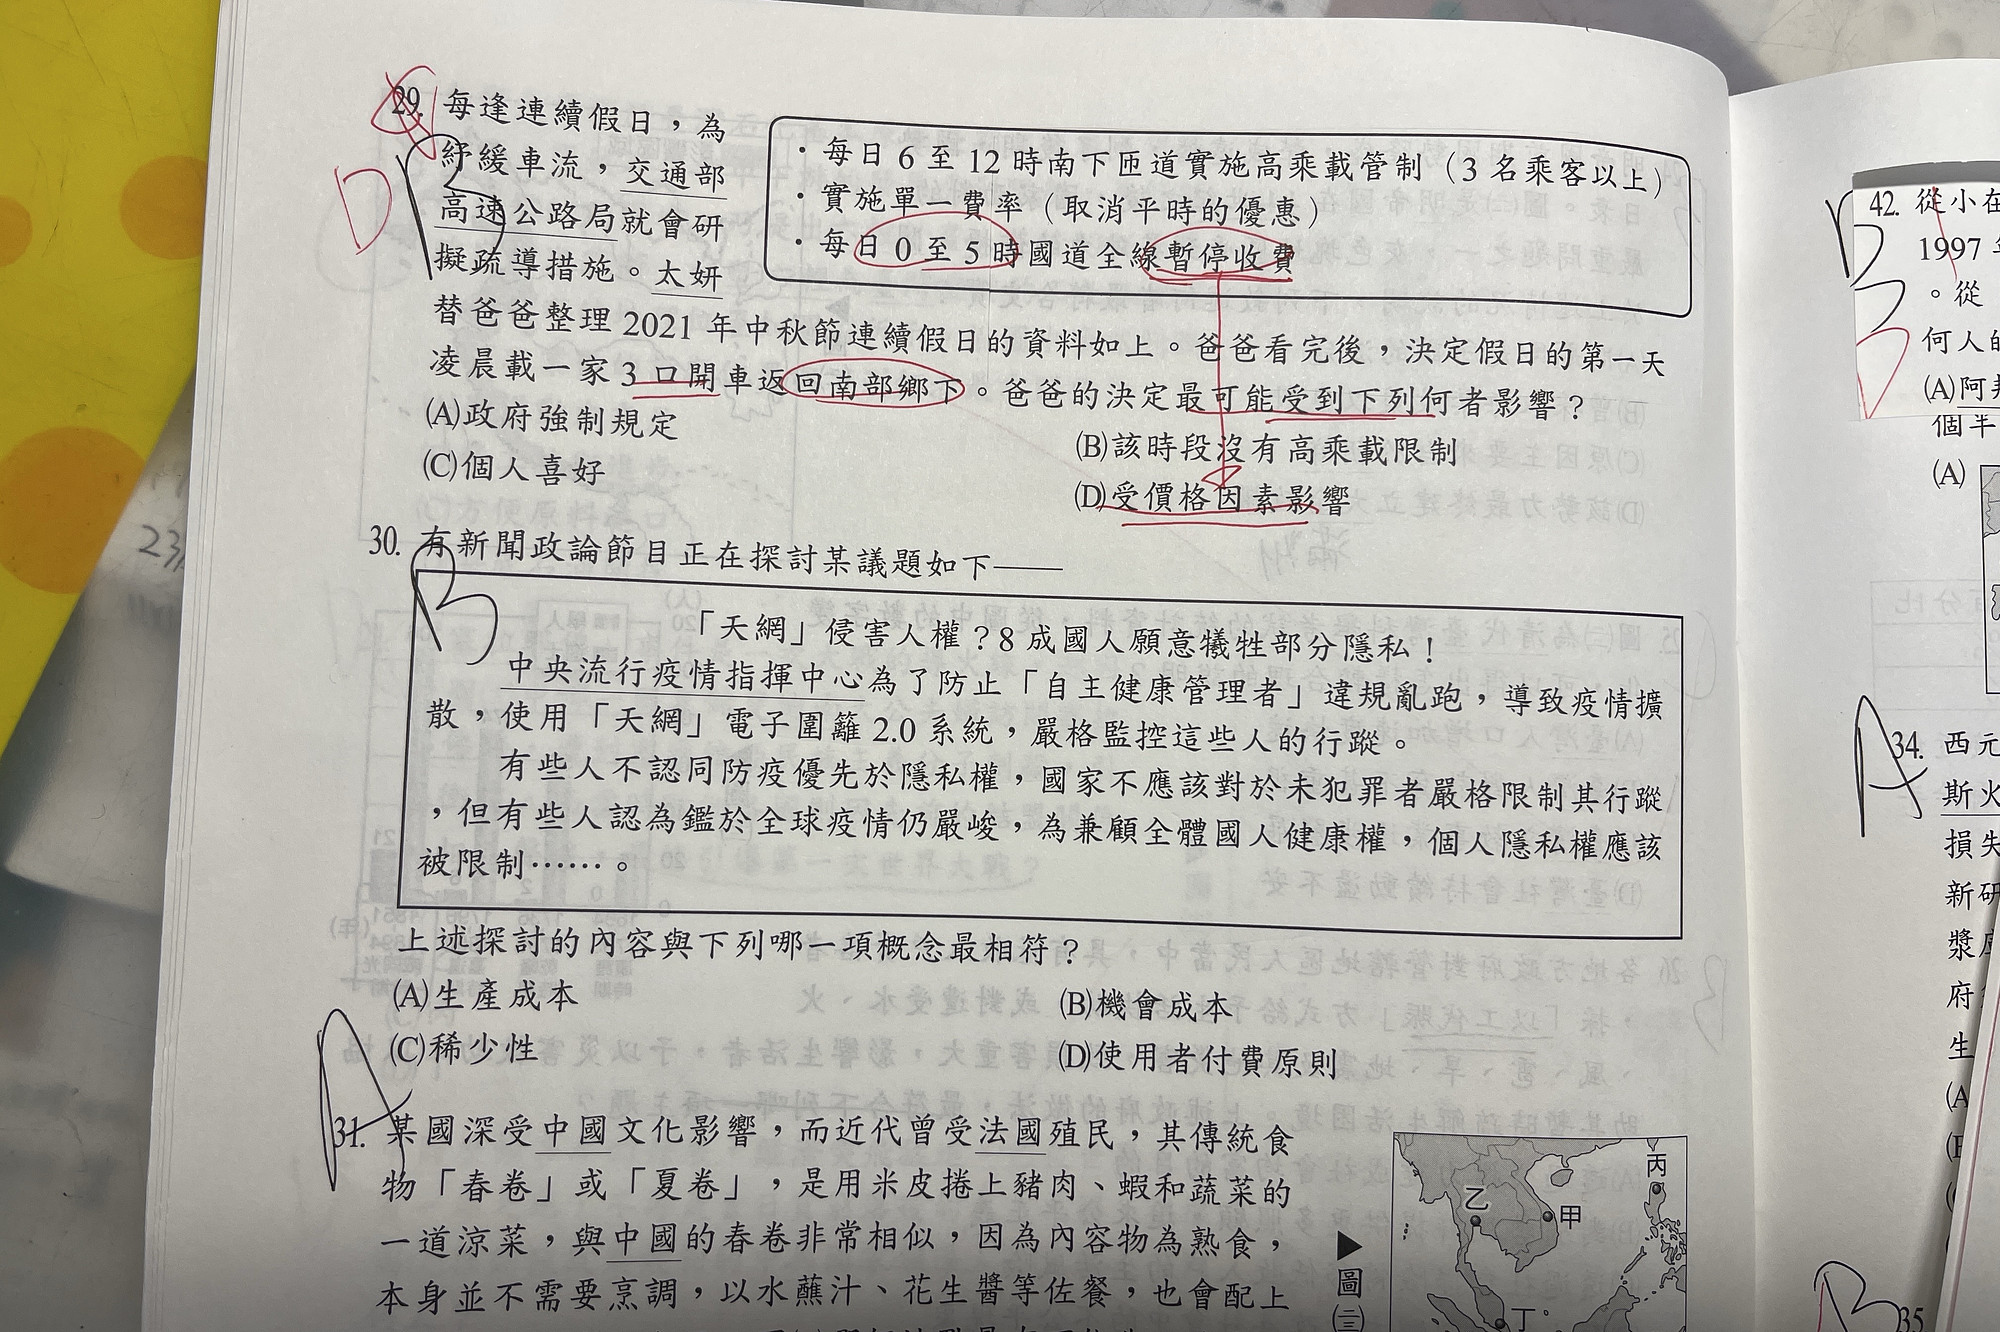 29. 每逢連續假日，為
紓緩車流，交通部
高速公路局就會研
擬疏導措施。太妍
・每日 6 至 12 時南下匝道實施高乘載管制（3 名乘客以上）
・實施單一費率（取消平時的優惠）
・每日 0 至 5 時國道全線暫停收費
替爸爸整理 2021 年中秋節連續假日的資料如上。爸爸看完後，決定假日的第一天
凌晨載一家 3 口開車返回南部鄉下。爸爸的決定最可能受到下列何者影響？
(A)政府強制規定
(B)該時段沒有高乘載限制
(C)個人喜好
(D)受價格因素影響
D
30. 有新聞政論節目正在探討某議題如下——
B
「天網」侵害人權？8 成國人願意犧牲部分隱私！
中央流行疫情指揮中心為了防止「自主健康管理者」違規亂跑，導致疫情擴
散，使用「天網」電子圍籬 2.0 系統，嚴格監控這些人的行蹤。
有些人不認同防疫優先於隱私權，國家不應該對於未犯罪者嚴格限制其行蹤
，但有些人認為鑑於全球疫情仍嚴峻，為兼顧全體國人健康權，個人隱私權應該
被限制……。
上述探討的內容與下列哪一項概念最相符？
(A)生產成本
(B)機會成本
(C)稀少性
(D)使用者付費原則
A
31. 某國深受中國文化影響，而近代曾受法國殖民，其傳統食
物「春卷」或「夏卷」，是用米皮捲上豬肉、蝦和蔬菜的
一道涼菜，與中國的春卷非常相似，因為內容物為熟食，
本身並不需要烹調，以水蘸汁、花生醬等佐餐，也會配上
甲
乙
丙
丁
▶圖(三)
B
42. 從小在
1997 年
。從
何人的
(A)阿
個半
(A)
A
34. 西元
斯火
損失
新研
漿
府
生
(A
B
35